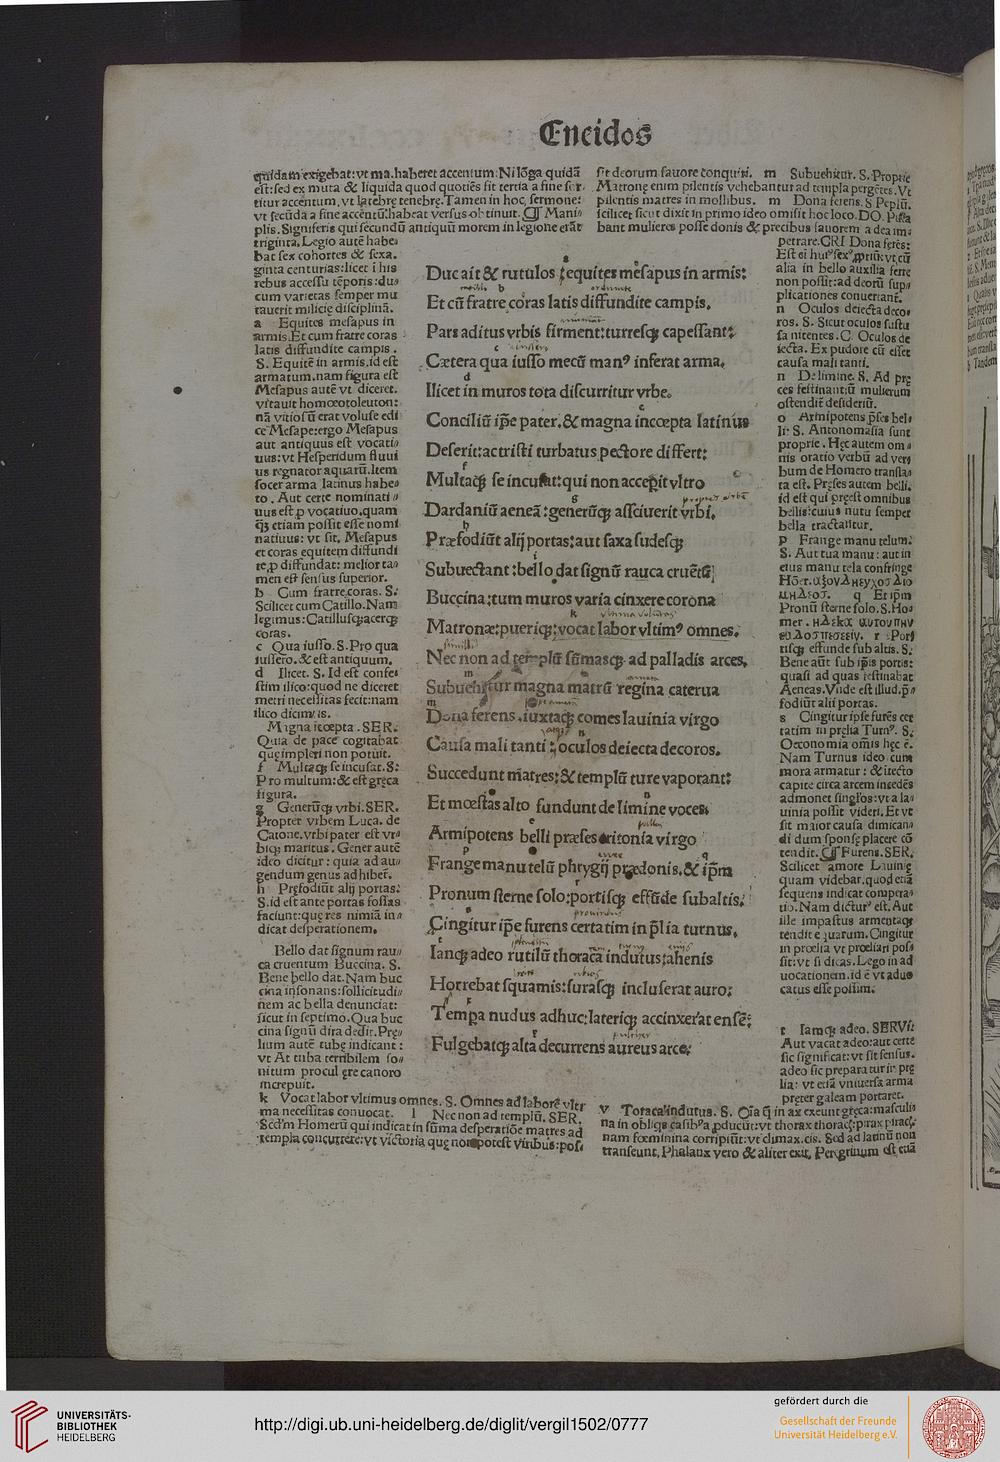 Eneidos
quidam exigebat: vt ma. haberet accentum: Ni lõga quidã
est: sed ex muta & liquida quod quotiẽs sit tertia a fine sor,
titur accentum, vt latebrę tenebrę. Tamen in hoc sermone:
vt secũda a fine accentũ. habeat versus obtinuit. ¶ Mani⸗
plis. Signiferis qui secundũ antiquũ morem in legione erãt
triginta. Legio autẽ habe⸗
bat sex cohortes & sexa.
ginta centurias: licet ĩ his
rebus accessu tẽporis: du⸗
cum varietas semper mu
tauerit milicię disciplinã.
a Equites mesapus in
armis. Et cum fratre coras
latis diffundite campis.
S. Equitẽ in armis. id est
armatum. nam figura est
Mesapus autẽ vt diceret.
vitauit homœotoleuton:
nã vitiosũ erat voluse edi
ce Mesape: ergo Mesapus
aut antiquus est vocati⸗
uus: vt Hesperidum fluui
us regnator aquarũ. Item
socer arma latinus habe⸗
to. Aut certe nominati⸗
uus est p vocatiuo. quam
q̃ȝ etiam possit esse nomi
natiuus: vt sit. Mesapus
et coras equitem diffundi
te, p diffundat: melior ta⸗
men est sensus superior.
b Cum fratre coras. S.
Scilicet cum Catillo. Nam
legimus: Catillusq; acerq;
coras.
c Qua iusso. S. Pro qua
iussero. & est antiquum.
d Ilicet. S. Id est confe⸗
stim ilico: quod ne diceret
metri necessitas fecit: nam
ilico dicimus.
Magna ĩcœpta. SER.
Quia de pace cogitabat
que impleri non potuit.
f Multaq; se incusat. S.
Pro multum: & est gręca
figura.
g Generũq; vrbi. SER.
Propter vrbem Luca. de
Catone. vrbi pater est vr⸗
biq; maritus. Gener autẽ
ideo dicitur: quia ad au⸗
gendum genus adhibet̃.
h Pręfodiũt alij portas:
S. id est ante portas fossas
faciunt: que res nimiã in⸗
dicat desperationem.
Bello dat signum rau⸗
ca cruentum Buccina. S.
Bene bello dat. Nam buc
cina insonans: sollicitudi⸗
nem ac bella denunciat:
sicut in septimo. Qua buc
cina signũ dira dedit. Prę⸗
lium autẽ tubę indicant:
vt At tuba terribilem so⸗
nitum procul ęre canoro
increpuit.
k Vocat labor vltimus omnes. S. Omnes ad laborẽ vltr
ma necessitas conuocat. l Nec non ad templũ. SER.
Scd'm Homerũ qui indicat in sũma desperatiõe matres ad
templa concurrere: vt victoria que non potest viribus: pos⸗
Duc ait & rutulos: equites mesapus in armis:
Et cũ fratre coras latis diffundite campis.
Pars aditus vrbis firment: turresq; capessant:
Cætera qua iusso mecũ man⁹ inferat arma.
Ilicet in muros tota discurritur vrbe.
Conciliũ ip̃e pater. & magna incœpta latinus
Deserit: ac tristi turbatus pectore differt:
Multaq; se incusat: qui non accepit vltro
Dardaniũ aeneã: generũq; assciuerit vrbi.
Præfodiũt alij portas: aut saxa sudesq;
Subuectant: bello dat signũ rauca cruẽtũ
Buccina: tum muros varia cinxere corona
Matronæ: pueriq;: vocat labor vltim⁹ omnes.
Nec non ad templũ sũmasq; ad palladis arces.
Subuehitur magna matrũ regina caterua
Dona ferens. iuxtaq; comes lauinia virgo
Causa mali tanti: oculos deiecta decoros.
Succedunt matres: & templũ ture vaporant:
Et mœstas alto fundunt de limine voces.
Armipotens belli præses tritonia virgo
Frange manu telũ phrygij prædonis. & ip̃m
Pronum sterne solo: portisq; effũde sub altis.
Cingitur ip̃e furens certatim in p̃lia turnus.
Ianq; adeo rutilũ thoraca indutus: ahenis
Horrebat squamis: surasq; incluserat auro:
Tempa nudus adhuc: lateriq; accinxerat ensẽ:
Fulgebatq; alta decurrens aureus arce:
sit deorum fauore conquiri. m Subuehitur. S. Proprie
Matronę enim pilentis vehebantur ad templa pergẽtes. Vt
pilentis matres in mollibus. m Dona ferens. S Peplũ.
scilicet sicut dixit in primo ideo omisit hoc loco. DO. Putta
bant mulieres posse donis & precibus fauorem a dea im⸗
petrare. CRI Dona ferẽs:
Est ei hui⁹ sex⁹ ꝓpriũ: vt cũ
alia in bello auxilia ferre
non possit: ad deorũ sup⸗
plicationes conuertant̃.
n Oculos deiecta deco⸗
ros. S. Sicut oculos suffu
sa nitentes. C. Oculos de
iecta. Ex pudore cũ esset
causa mali tanti.
n De limine. S. Ad prę
ces festinantiũ mulierum
ostendit desideriũ.
o Armipotens p̃ses bel⸗
li: S. Antonomasia sunt
proprie. Hęc autem om⸗
nis oratio verbũ ad ver⸗
bum de Homero transla⸗
ta est. Pręses autem belli.
id est qui pręest omnibus
bellis: cuius nutu semper
bella tractantur.
p Frange manu telum.
S. Aut tua manu: aut in
eius manu tela confringe
q Et ip̃m
Pronũ sterne solo. S. Ho⸗
r Port
tisq; effunde sub altis. S.
Bene aũt sub ip̃is portis:
quasi ad quas festinabat
Aeneas. Vnde est illud. p̃⸗
fodiũt alii portas.
s Cingitur ipse furẽs cer
tatim in pręlia Turn⁹. S.
Oeconomia om̃is hęc ẽ.
Nam Turnus ideo cum
mora armatur: & itecto
capite circa arcem incedẽs
admonet singľos: vt a la⸗
uinia possit videri. Et vt
sit maior causa dimican⸗
di dum sponsę placere cõ
tendit. ¶ Furens. SER.
Scilicet amore Lauinię
quam videbat. quod etiã
sequens indicat compara⸗
tio. Nam dictur⁹ est. Aut
ille impastus armentaq;
tendit equarum. Cingitur
in prœlia vt prœliari pos⸗
sit: vt si dicas. Lego in ad
uocationem. id ẽ vt aduo
catus esse possim.
t Iamq; adeo. SERVI:
Aut vacat adeo: aut certe
sic significat: vt sit sensus.
adeo sic preparatur in prę
lia: vt etiã vniuersa arma
pręter galeam portaret.
v Toraca indutus. S. Oĩa q̃ in ax exeunt gręca: masculi⸗
na in obliq̃s casib⁹ a ꝓducũt: vt thorax thoracꝭ: pirax piracꝭ.
nam fœminina corripiũt: vt climax. cis. Sed ad latinũ non
transeunt. Phalanx vero & aliter exit. Peregrinum est etiã
UNIVERSITÄTS-
BIBLIOTHEK
HEIDELBERG
http://digi.ub.uni-heidelberg.de/diglit/vergil1502/0777
gefördert durch die
Gesellschaft der Freunde
Universität Heidelberg e.V.